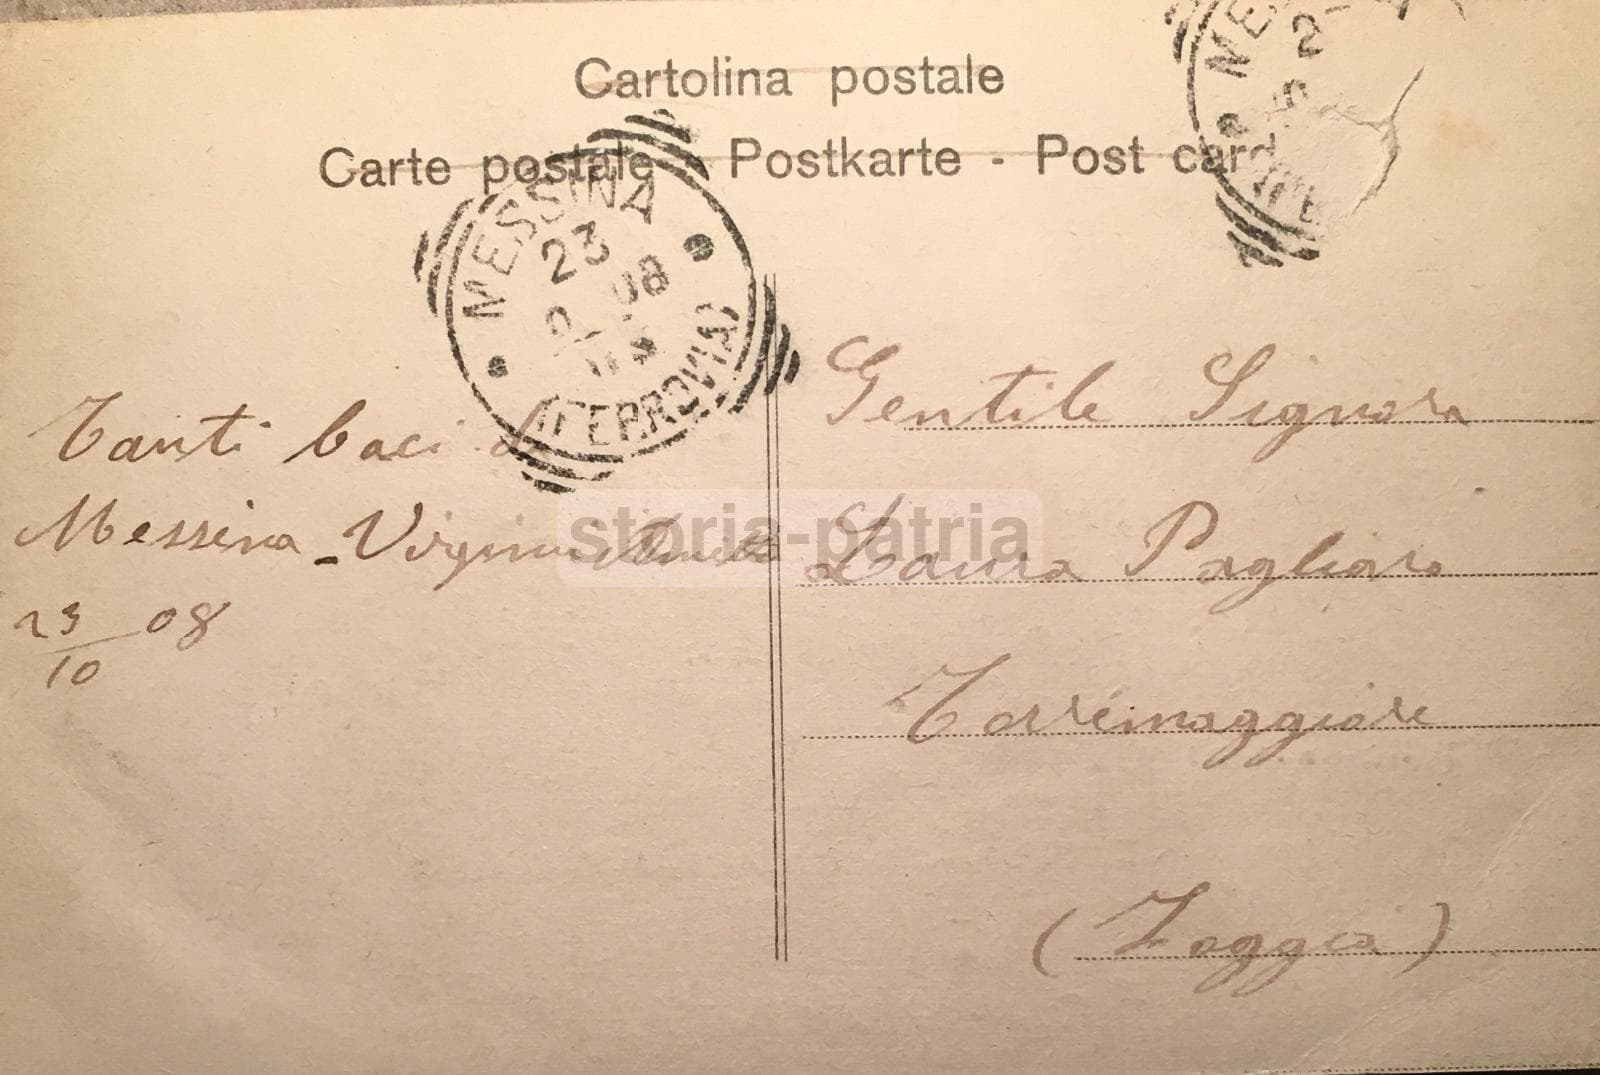 Cartolina postale
Carte postale - Postkarte - Post card
MESSINA
23
08
(FERROVIA)
ME
2
Tanti baci da
Messina - Virginia
23/10 08
Gentile Signora
Laura Pagliara
Torremaggiore
(Foggia)
storia-patria